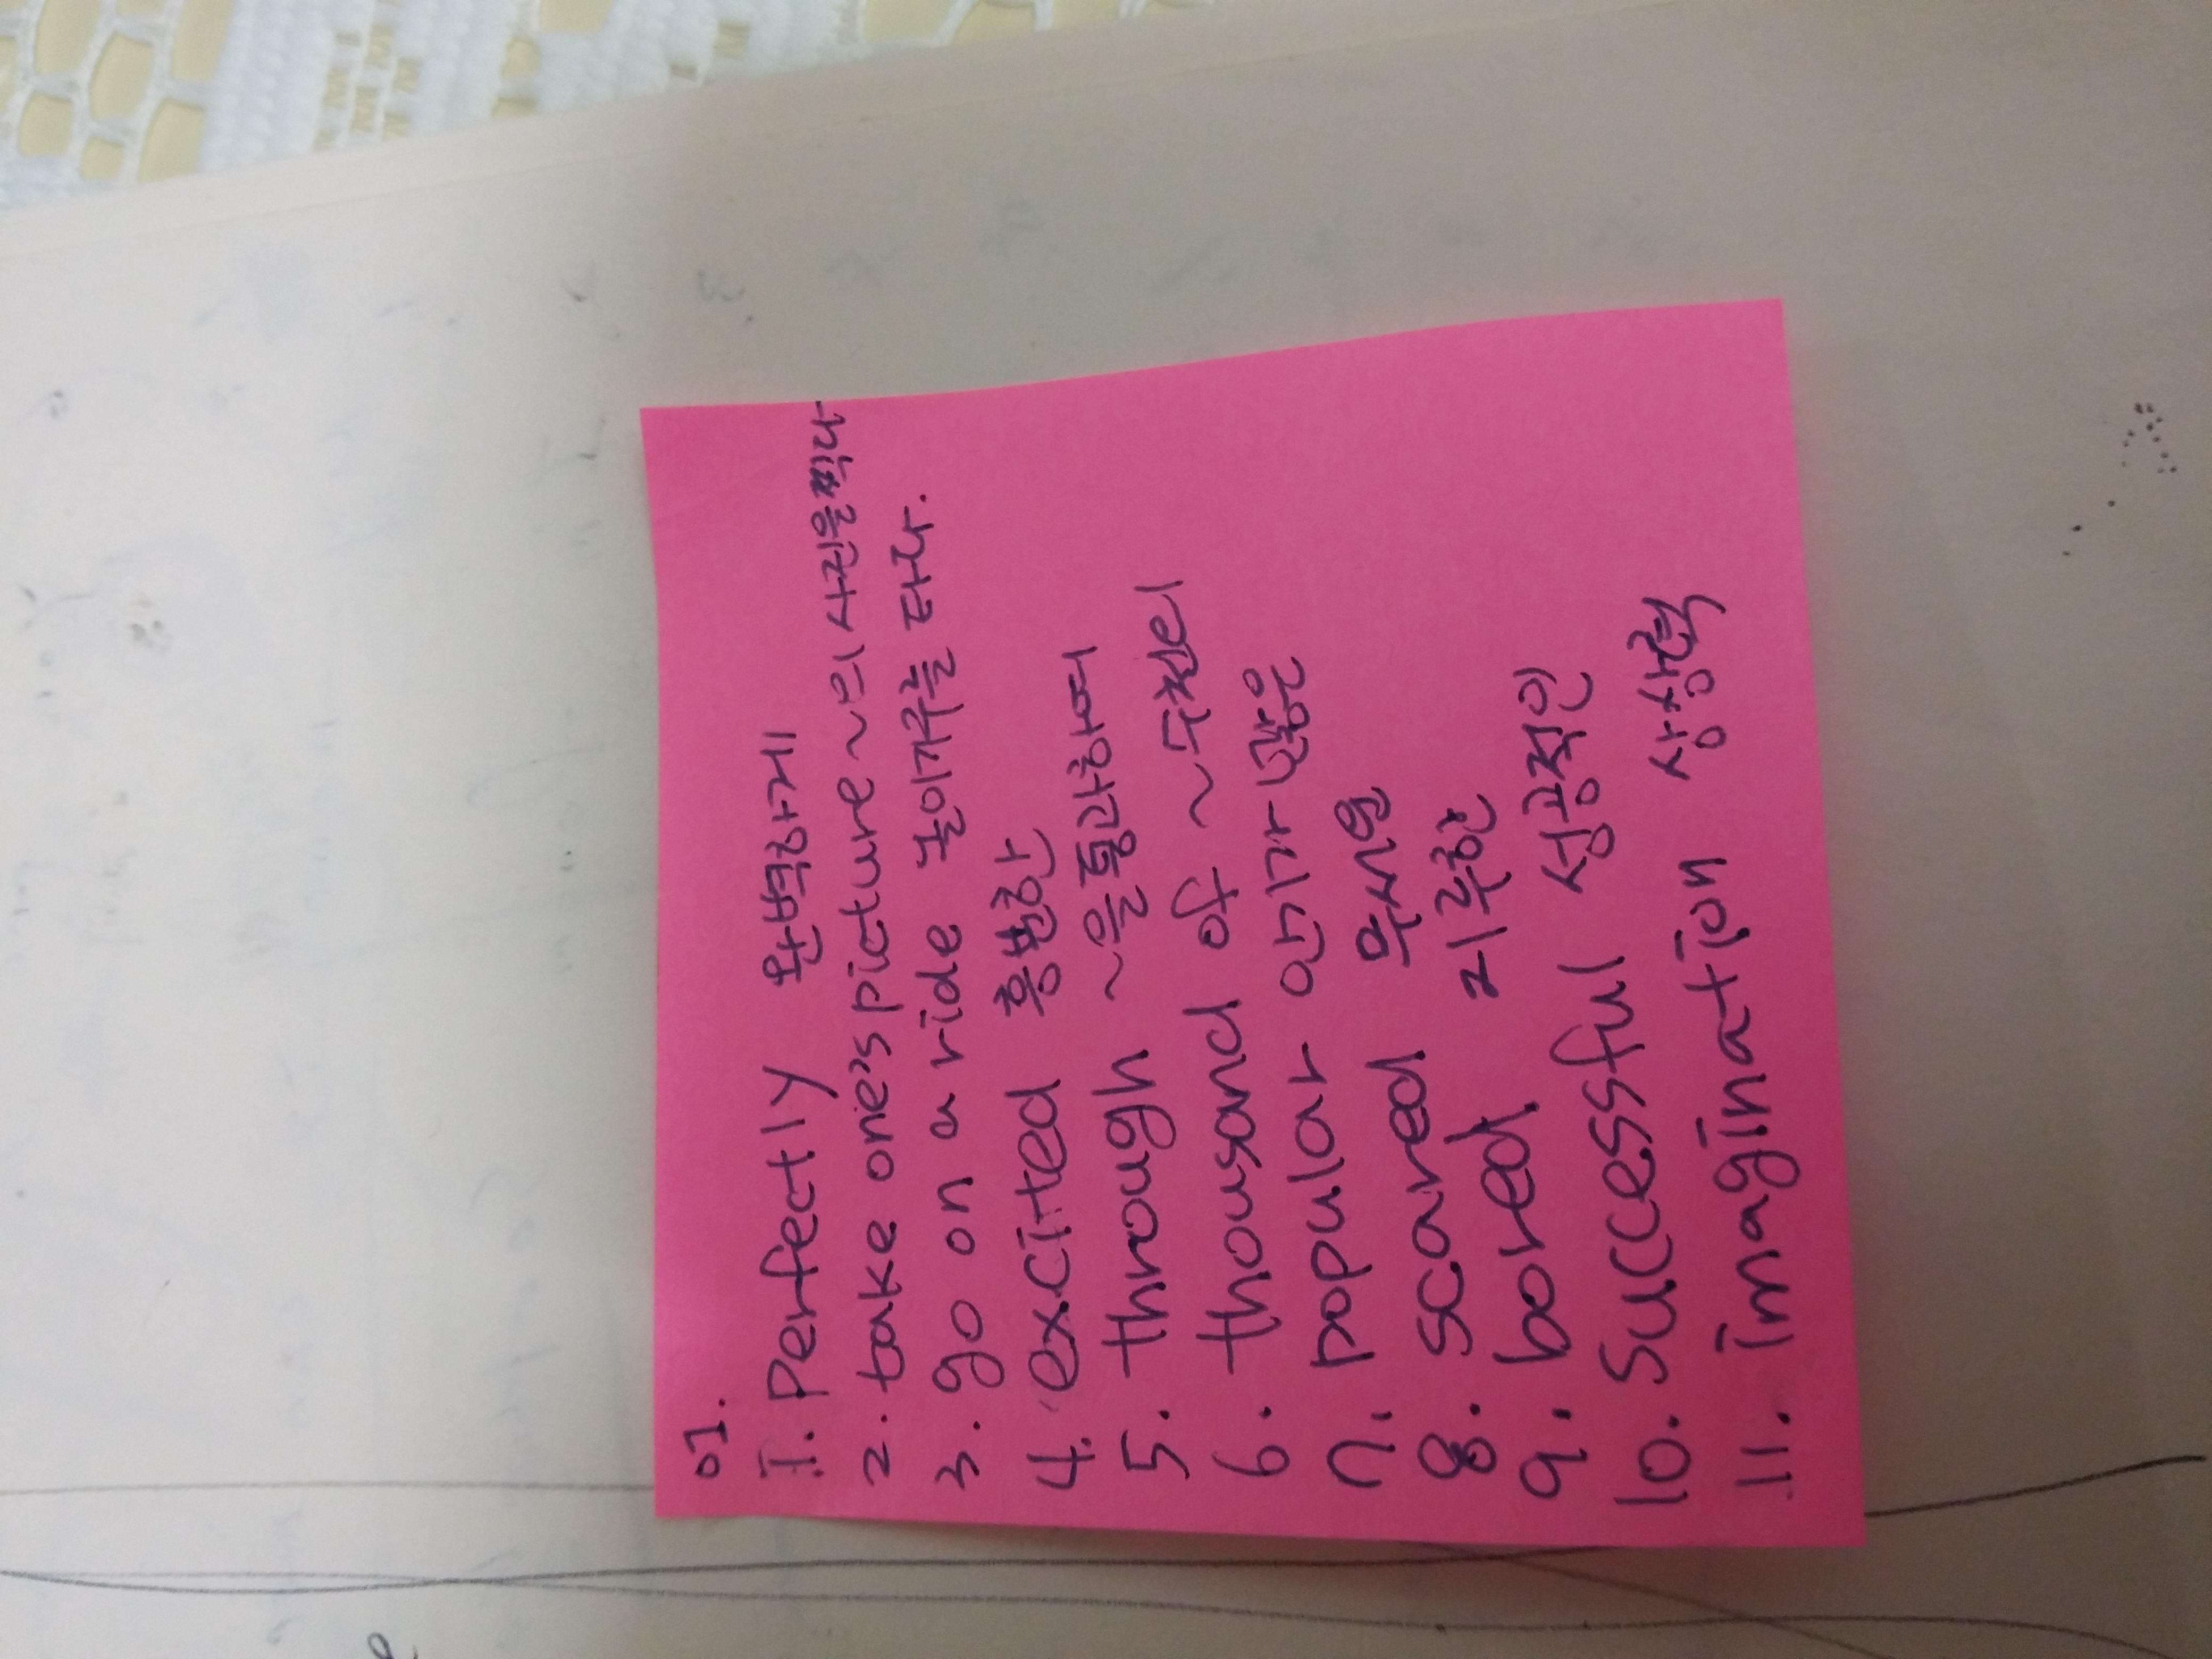 01.
1. Perfectly 완벽하게
2. take one's picture ~의 사진을 찍다
3. go on a ride 놀이기구를 타다.
4. excited 흥분한
5. through ~을 통과하여
6. thousand of ~수천의
7. popular 인기있는
8. scared 무서운
9. bored 지루한
10. Successful 성공적인
11. imagination 상상력